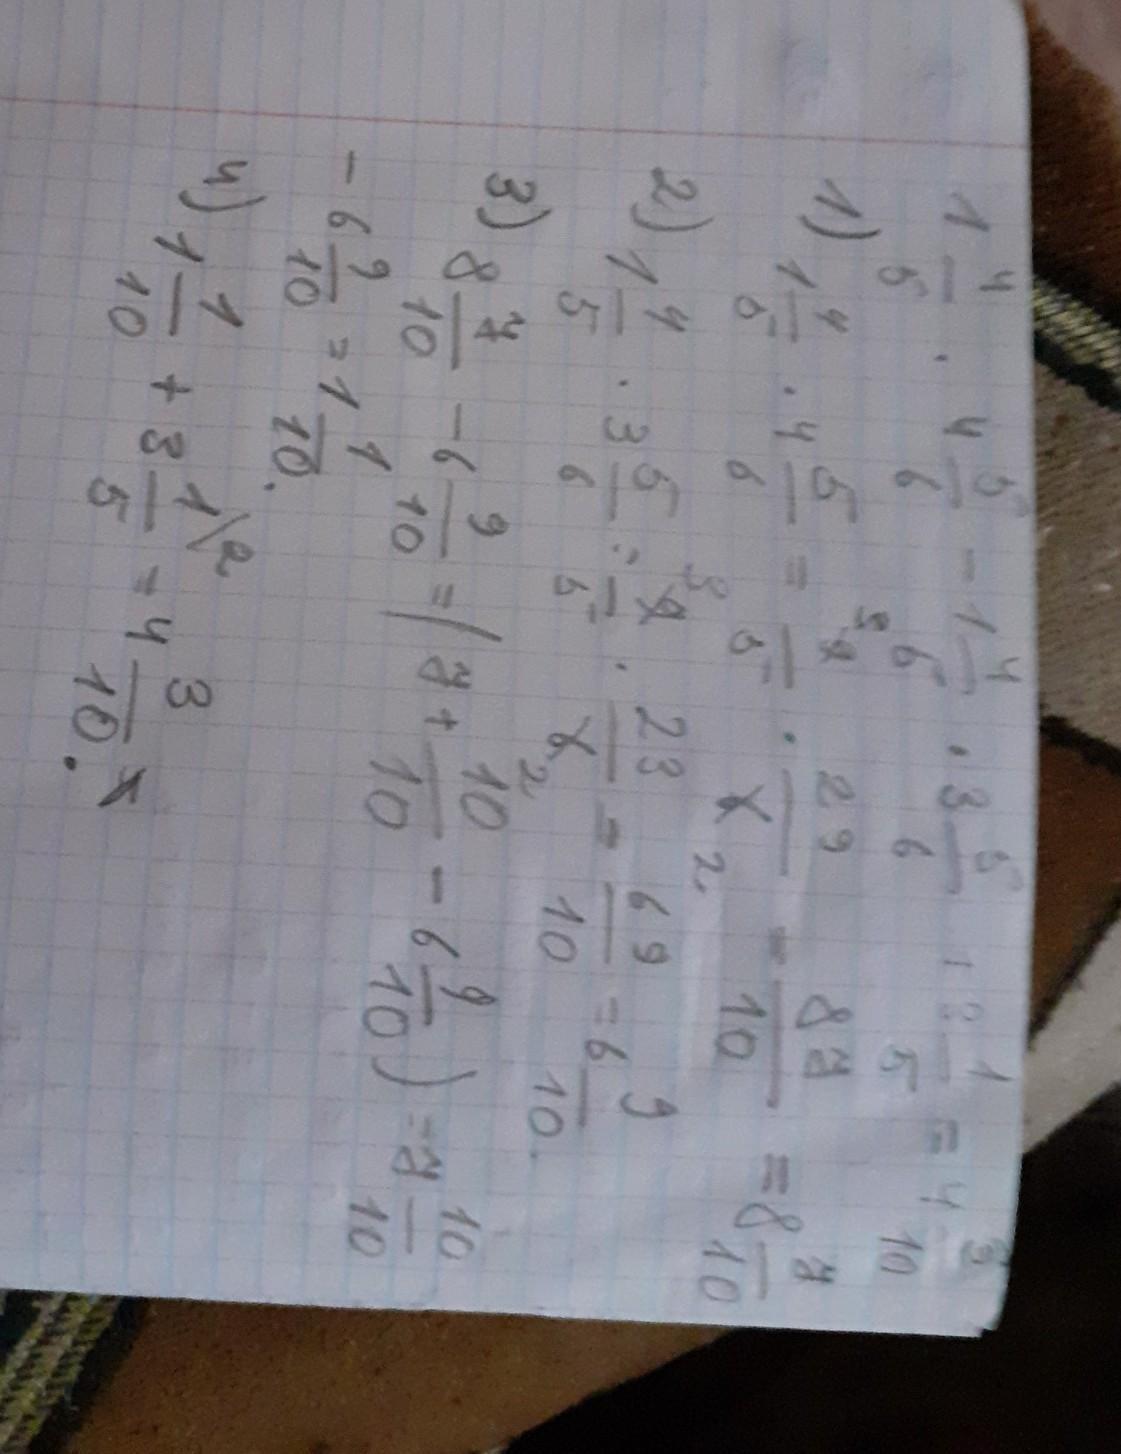 1 4/5 · 4 5/6 - 1 4/5 · 3 5/6 + 3 1/5 = 4 3/10
1) 1 4/5 · 4 5/6 = 9/5 · 29/6 = 87/10 = 8 7/10
2) 1 4/5 · 3 5/6 = 9/5 · 23/6 = 69/10 = 6 9/10.
3) 8 7/10 - 6 9/10 = (7 + 10/10 - 6 9/10) = 7 10/10
- 6 9/10 = 1 1/10.
4) 1 1/10 + 3 1/5 = 4 3/10.